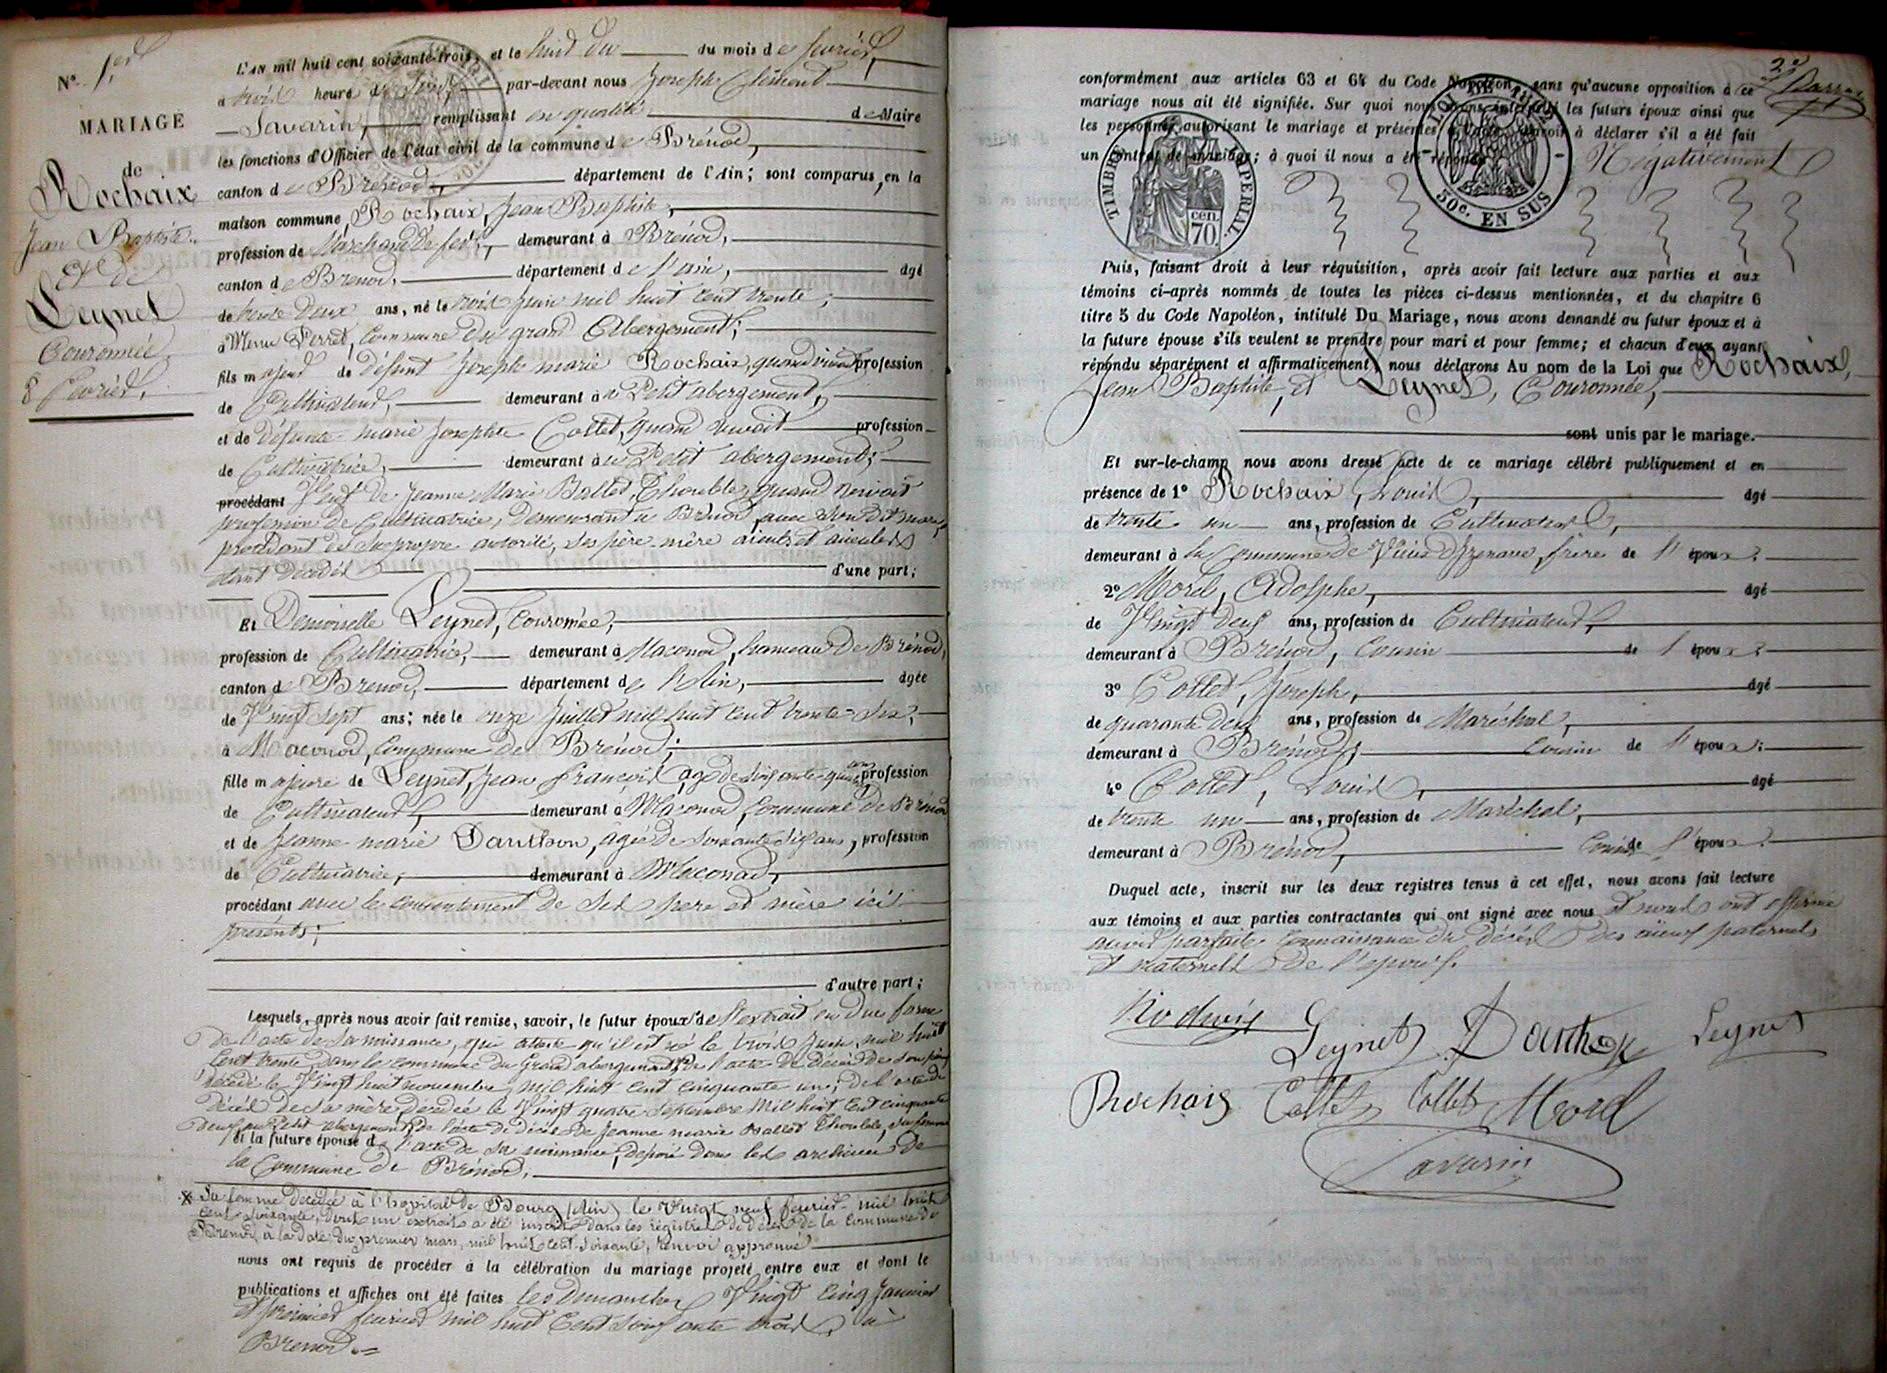 N° 1er
MARIAGE
de
Rochaix
Jean Baptiste
Et de
Leynet
Couronnée
8 Février.
L'AN mil huit cent soixante-trois, et le huit du du mois de février,
à trois heure de par-devant nous Joseph Clément
Savarin, remplissant en qualité de Maire
les fonctions d'Officier de l'état civil de la commune de Brénod,
canton de Brénod, département de l'Ain; sont comparus, en la
maison commune Rochaix, Jean Baptiste,
profession de Marchand de fer, demeurant à Brénod,
canton de Brenod, département de l'ain, âgé
de trente deux ans, né le trois Juin mil huit cent trente;
a Ferret, Commune du grand Abergement;
fils majeur de défunt Joseph marie Rochaix, quand vivait profession
de Cultivateur, demeurant à u Petit abergement,
et de défunte marie Josephte Collet, quand vivait profession
de Cultivatrice, demeurant à u Petit abergement;
procédant Veuf de Jeanne Marie Ballet Thouble, quand vivait
profession de Cultivatrice, demeurant à Brénod, avec son dit mari,
procédant de sa propre autorité, ses père mère aïeuls et aieules
étant décédés d'une part;
Et Demoiselle Leynet, Couronnée,
profession de Cultivatrice, demeurant à Maconod, hameau de Brénod,
canton de Brenod, département de l'Ain, âgée
de Vingt sept ans; née le onze Juillet mil huit cent trente-six;
à Maconod, Commune de Brénod;
fille majeure de Leynet, Jean François, agé de soixante quinze ans profession
de Cultivateur, demeurant à Maconod, Commune de Brénod
et de Jeanne marie Danthon, agée de Soixante dix ans, profession
de Cultivatrice, demeurant à Maconod,
procédant avec le consentement de ses père et mère ici
présents;
d'autre part;
Lesquels, après nous avoir fait remise, savoir, le futur époux de l'extrait en due forme
de l'acte de sa naissance, qui atteste qu'il est né le trois Juin mil huit
Cent trente dans la commune du Grand abergement, de l'acte de décès de son père
décédé le Vingt huit novembre mil huit cent cinquante un; de l'acte de
décès de sa mère décédée le Vingt quatre Septembre mil huit Cent cinquante
deux au Petit abergement, de l'acte de décès de Jeanne marie Ballet Thouble, sa femme
Et la future épouse de l'acte de sa naissance, déposé dans les archives de
la Commune de Brénod.
* Sa femme décédée à l'hopital de Bourg (Ain) le Vingt neuf février mil huit
cent soixante, dont un extrait a été inscrit dans les registres de décès de la commune de
Brénod, à la date du premier mars, mil huit cent soixante, renvoi approuvé
nous ont requis de procéder à la célébration du mariage projeté entre eux et dont le
publications et affiches ont été faites les Dimanches Vingt Cinq Janvier
et premier février mil huit Cent soixante trois, à
Brenod.
conformément aux articles 63 et 64 du Code Napoléon, sans qu'aucune opposition à ce
mariage nous ait été signifiée. Sur quoi nous avons interpellé les futurs époux ainsi que
les personnes autorisant le mariage et présentes à l'acte, d'avoir à déclarer s'il a été fait
un contrat de mariage; à quoi il nous a été répondu Négativement
TIMBRE IMPERIAL
cen.
70
2 Dixièmes
30c. EN SUS
Puis, faisant droit à leur réquisition, après avoir fait lecture aux parties et aux
témoins ci-après nommés de toutes les pièces ci-dessus mentionnées, et du chapitre 6
titre 5 du Code Napoléon, intitulé Du Mariage, nous avons demandé au futur époux et à
la future épouse s'ils veulent se prendre pour mari et pour femme; et chacun d'eux ayant
répondu séparément et affirmativement, nous déclarons Au nom de la Loi que Rochaix,
Jean Baptiste, et Leynet, Couronnée,
sont unis par le mariage.
Et sur-le-champ nous avons dressé acte de ce mariage célébré publiquement et en
présence de 1° Rochaix, Louis, âgé
de trente un ans, profession de Cultivateur,
demeurant à la Commune de Vieux d'Izenave, frère de l'époux;
2° Morel, Adolphe, âgé
de Vingt deux ans, profession de Cultivateur,
demeurant à Brénod, Cousin de l'époux;
3° Collet, Joseph, âgé
de quarante deux ans, profession de Maréchal,
demeurant à Brénod; Cousin de l'époux;
4° Collet, Louis, âgé
de trente un ans, profession de Maréchal,
demeurant à Brénod, Cousin de l'époux.
Duquel acte, inscrit sur les deux registres tenus à cet effet, nous avons fait lecture
aux témoins et aux parties contractantes qui ont signé avec nous et nous ont affirmé
avoir parfaite connaissance du décès des aieux paternels
et maternels de l'époux.
Leynet Danthon Leynet
Rochaix Collet Collet Morel
Savarin